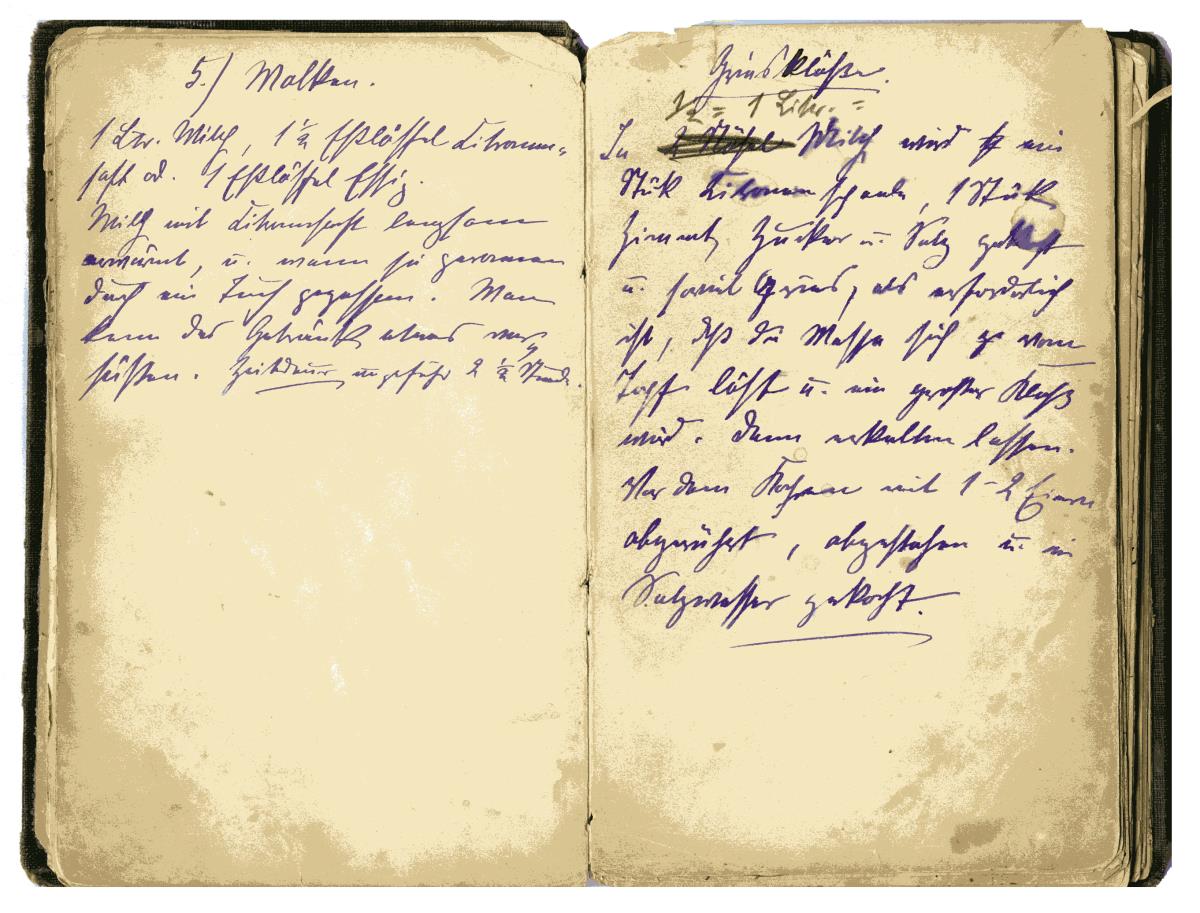 5.) Molken.
1 Ltr. Milch, 1 1/2 Eßlöffel Zitronen-
saft od. 1 Eßlöffel Essig.
Milch mit Zitronensaft langsam
erwärmt, u. wenn sie geronnen
durch ein Tuch gegossen. Man
kann das Getränk etwas ver-
süßen. Zeitdauer ungefähr 2 1/2 Stund.
Griesklöße.
1/2 = 1 Liter. =
In 2 Nösel Milch wird ein
Stük Zitronenschaale, 1 Stük
Zimmt, Zucker u. Salz gekocht
u. soviel Gries, als erforderlich
ist, daß die Masse sich vom
Topf löst u. ein großer Kloß
wird. Dann erkalten lassen.
Vor dem Kochen mit 1-2 Eiern
abgerührt, abgestochen u. in
Salzwasser gekocht.